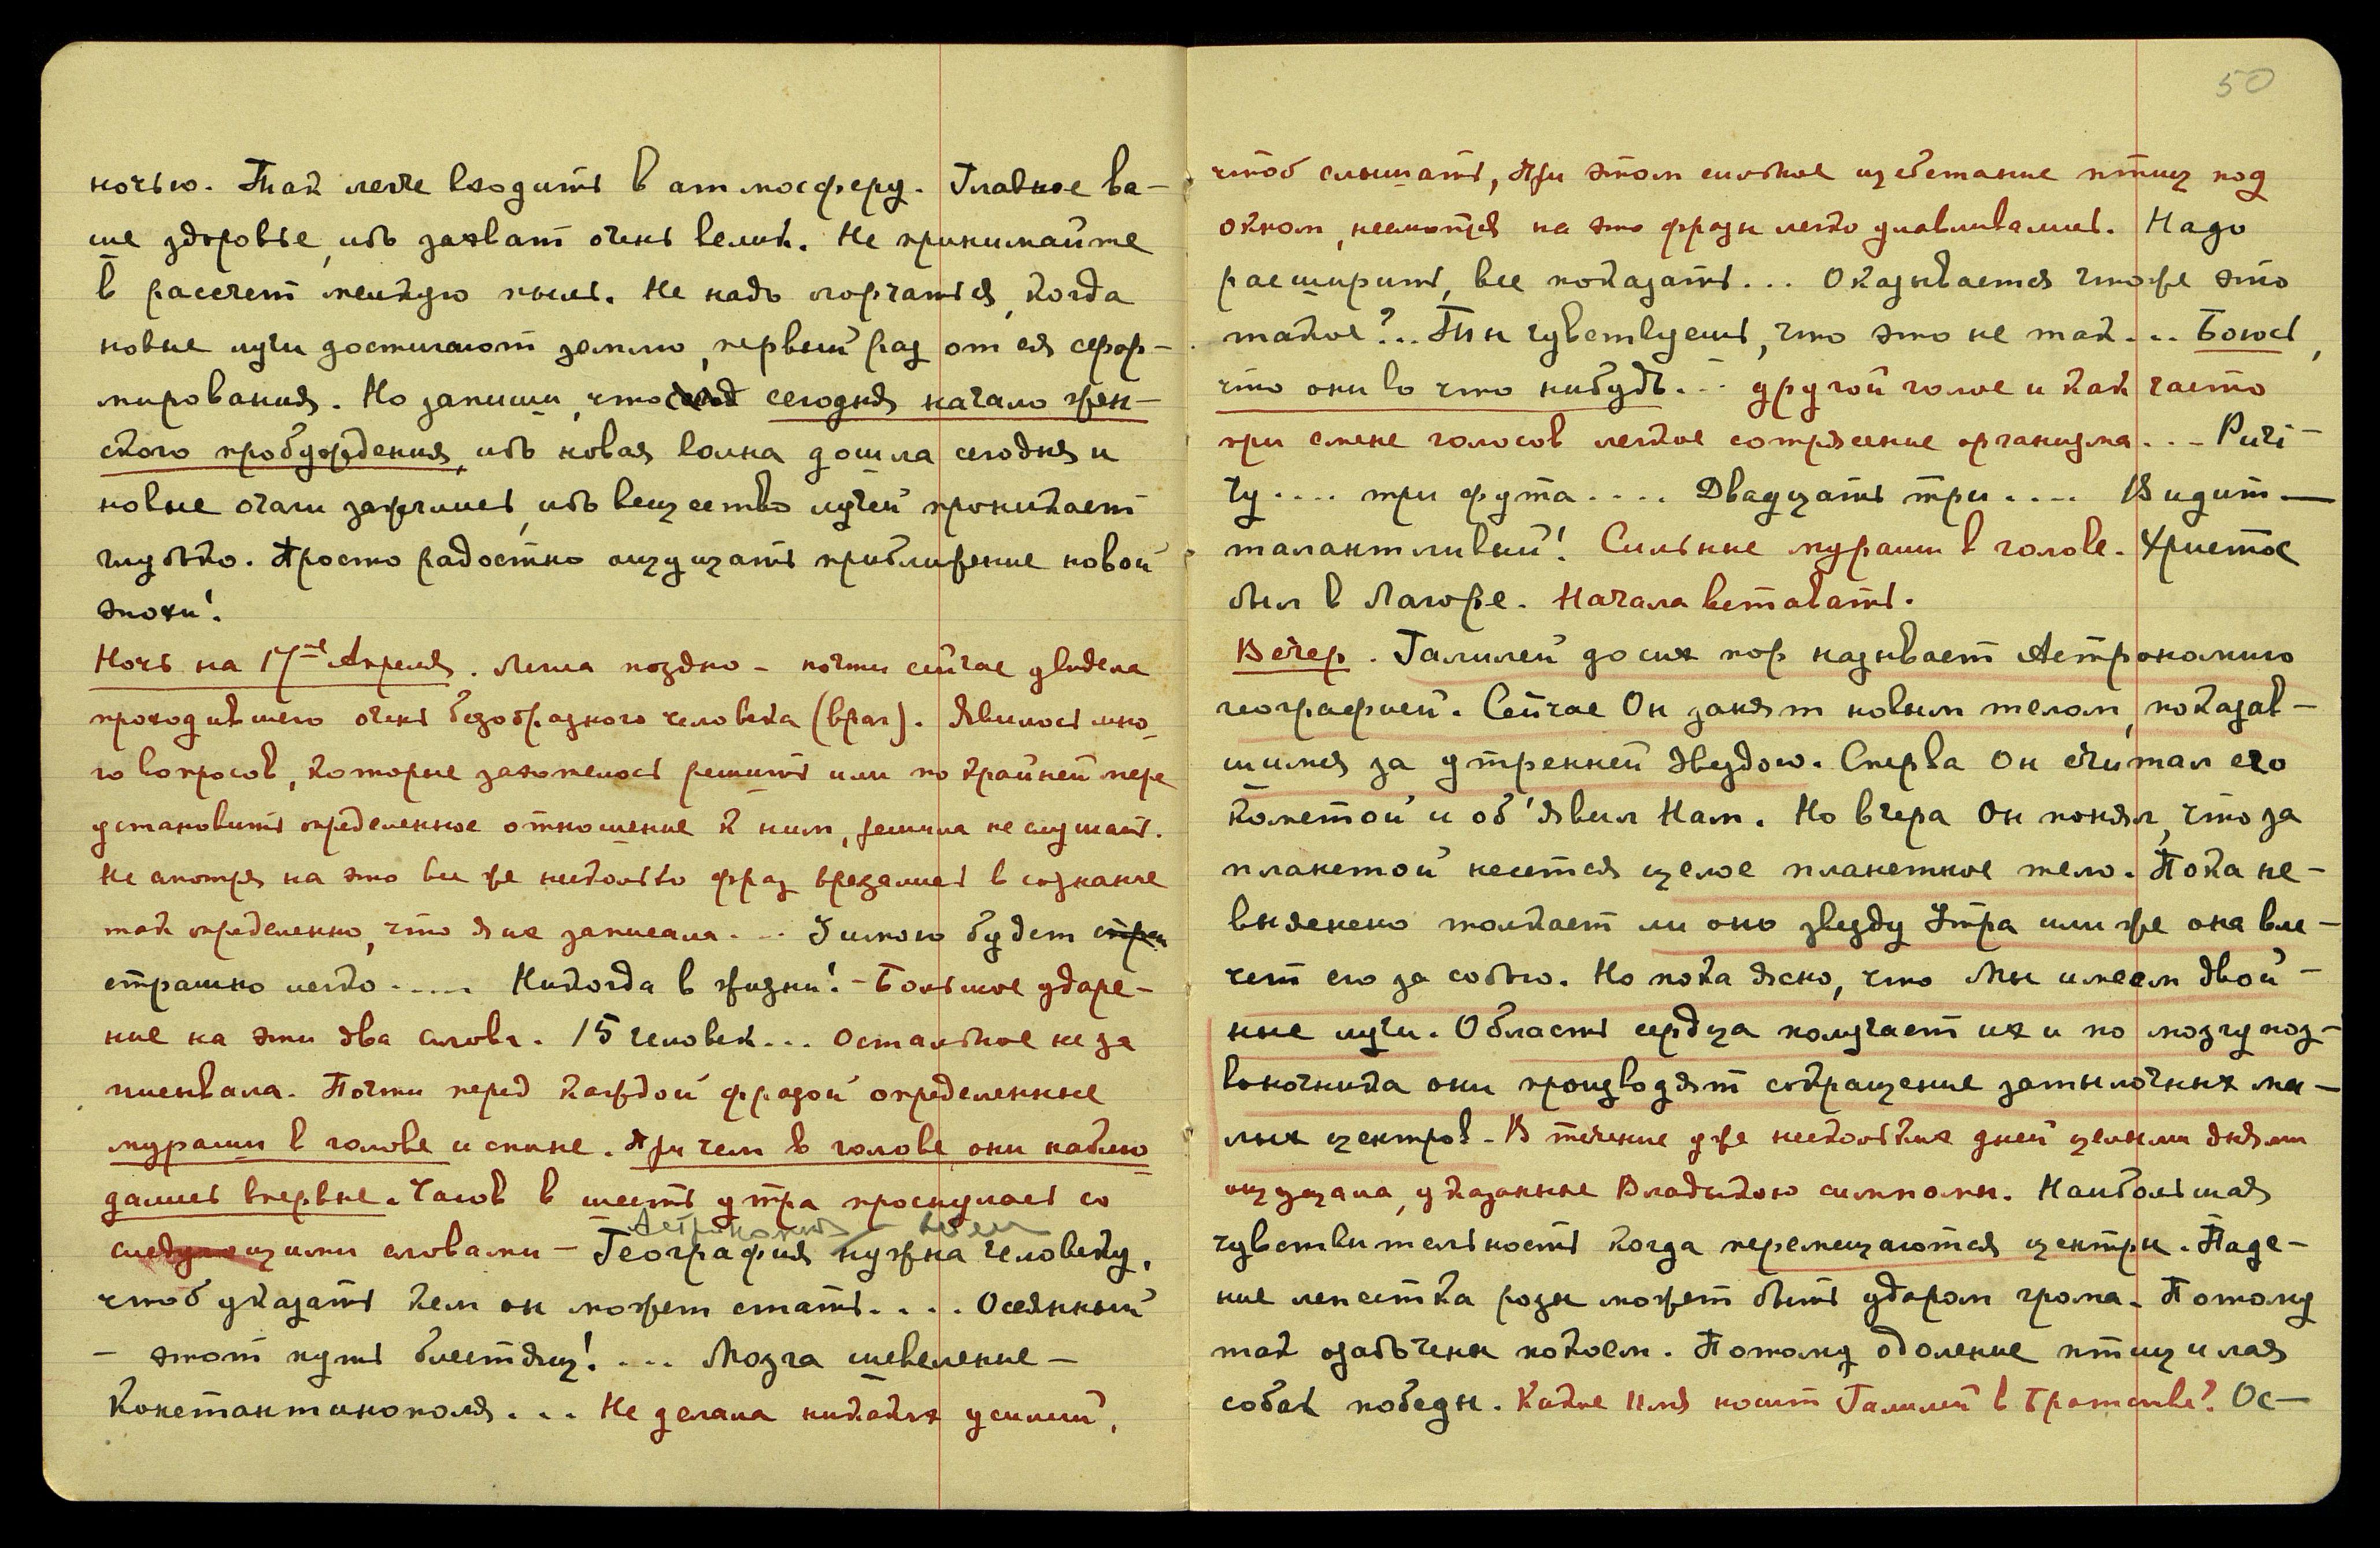 ночью. Так легче входить в атмосферу. Главное ва-
ше здоровье, ибо захват очень велик. Не принимайте
в рассчет мелкую пыль. Не надо огорчаться, когда
новые лучи достигают землю, первый раз от ея сфор-
мирования. Но запиши, что сегодня начало жен-
ского пробуждения, ибо новая волна дошла сегодня и
новые очаги зажглись, ибо вещество лучей проникает
глубоко. Просто радостно ощущать приближение новой
эпохи!
Ночь на 17ое Апреля. Легла поздно – почти сейчас увидела
проходившего очень безобразного человека (враг). Явилось мно-
го вопросов, которые захотелось решить или по крайней мере
установить определенное отношение к ним, решила не слушать.
Не смотря на это все же несколько фраз врезались в сознание
так определенно, что я их записала... Зимою будет стра
страшно легко ..... Никогда в жизни! – Большое ударе-
ние на эти два слова. 15 человек... Остальное не за
писывала. Почти перед каждой фразой определенные
мураши в голове и спине. При чем в голове они наблю
дались впервые. Часов в шесть утра проснулась со
следующими словами – География нужна человеку,
Астрономия – всем
чтоб указать кем он может стать.... Осеянный
– этот путь блестящ! .... Мозга шевеление –
Константинополя... Не делала никаких усилий,
50
чтоб слышать, При этом сильное щебетание птиц под
окном, несмотря на это фразы легко улавливались. Надо
расширить, все показать... Оказывается что же это
такое?.. Ты чувствуешь, что это не так... Боюсь,
что они во что нибудь... другой голос и как часто
при смене голосов легкое сотрясение организма... – Ричи-
чу .... три фута.... Двадцать три.... Видит —
талантливый! Сильные мураши в голове. Христос
был в Лагоре. Начала вставать.
Вечер. Галилей до сих пор называет Астрономию
географией. Сейчас Он занят новым телом, показав-
шимся за утренней Звездою. Сперва Он считал его
кометой и об'явил Нам. Но вчера Он понял, что за
планетой несется целое планетное тело. Пока не-
выяснено толкает ли оно звезду Утра или же она вле-
чет его за собою. Но пока ясно, что Мы имеем двой-
ные лучи. Область сердца получает их и по мозгу поз-
воночника они производят сокращение затылочных ма-
лых центров. В течение уже нескольких дней целыми днями
ощущала, указанные Владыкою симптомы. Наибольшая
чувствительность когда перемещаются центры. Паде-
ние лепестка розы может быть ударом грома. Потому
так озабочены покоем. Потому одоление птиц и лая
собак победы. Какое Имя носит Галилей в Братстве? Ос-